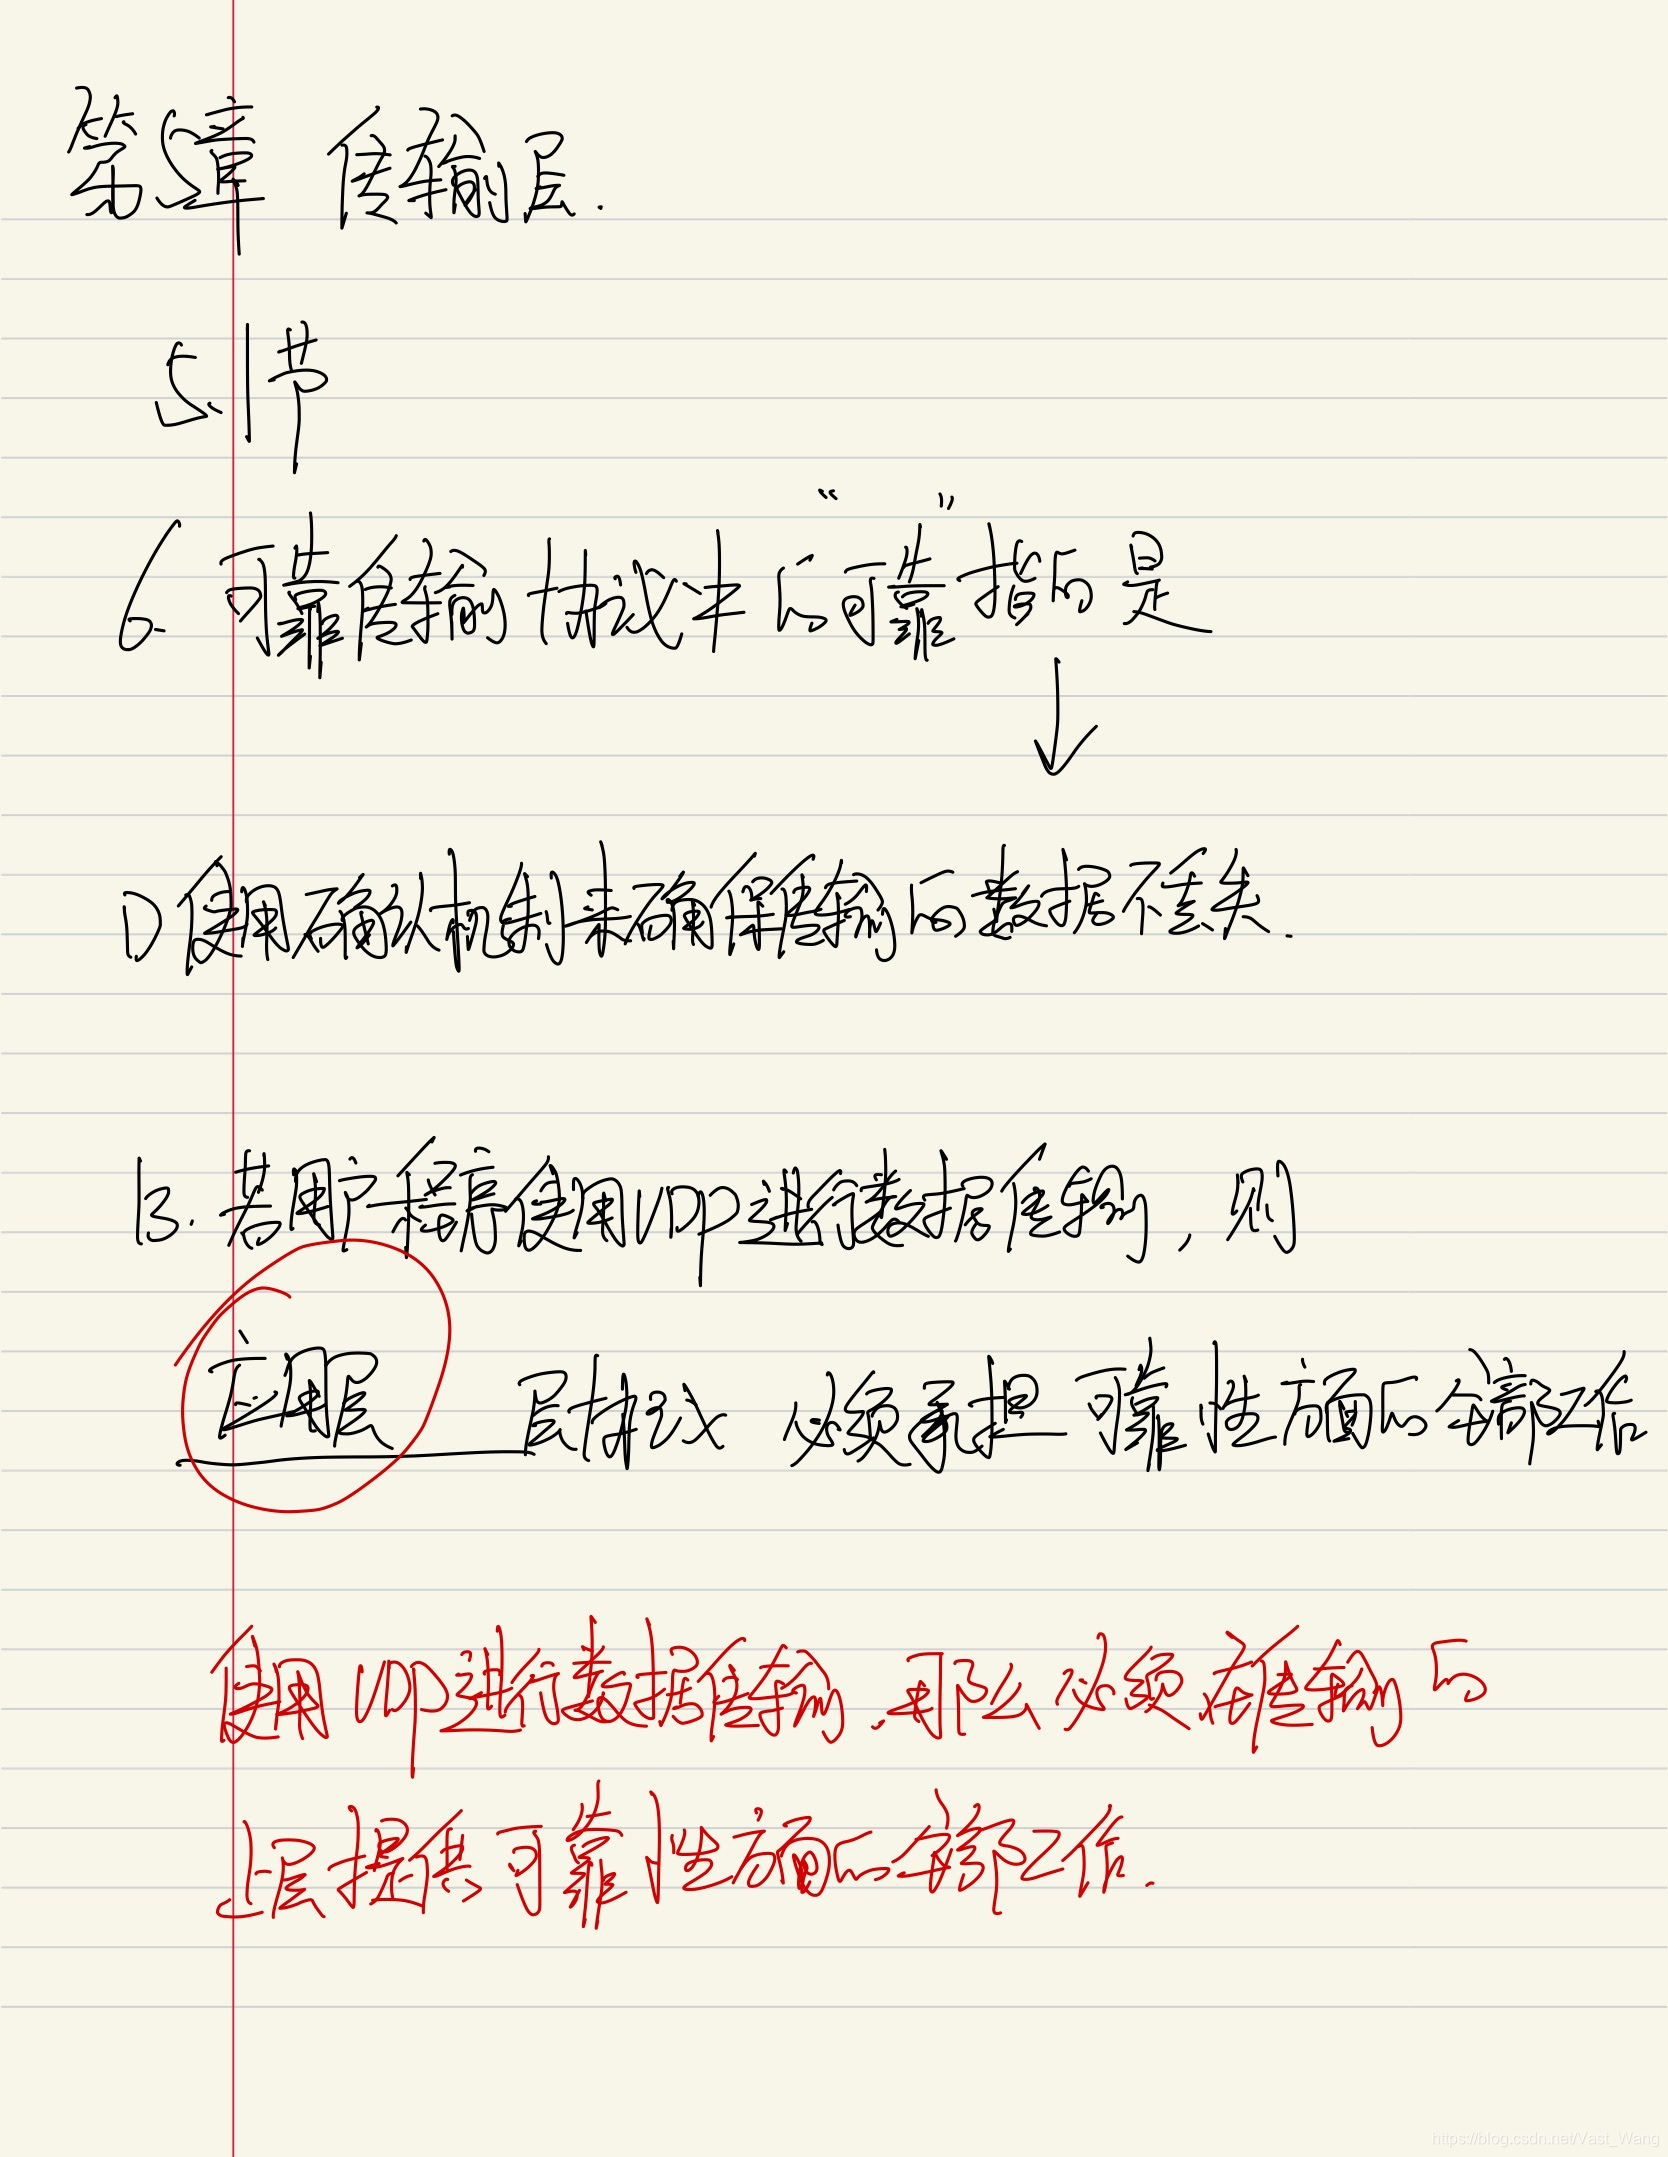 第5章 传输层.
5.1节
6. 可靠传输协议中的“可靠”指的是
D 使用确认机制来确保传输的数据不丢失.
13. 若用户程序使用UDP进行数据传输, 则
应用层 层协议 必须承担 可靠性方面的全部工作
使用UDP进行数据传输,那么必须在传输的
上层提供可靠性方面的全部工作.
https://blog.csdn.net/Vast_Wang